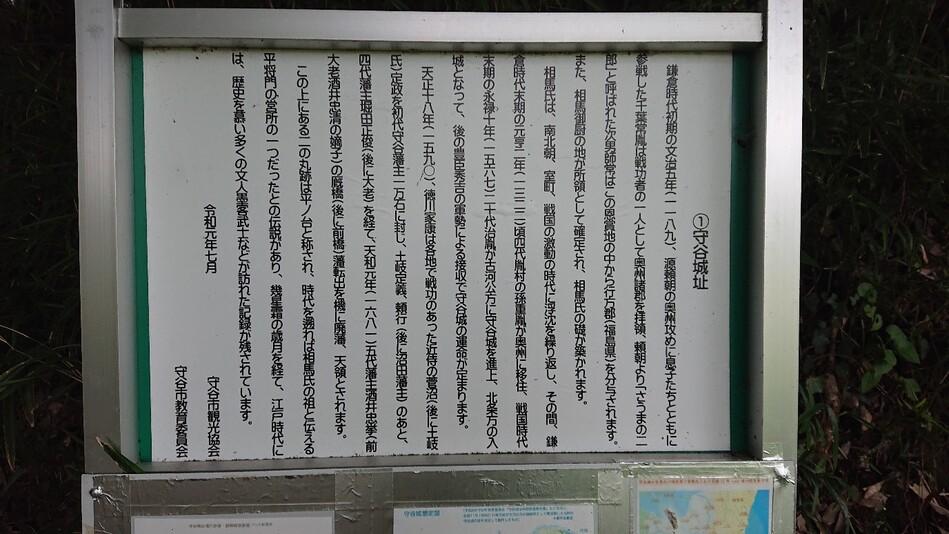 ①守谷城址
鎌倉時代初期の文治五年(一一八九)、源頼朝の奥州攻めに息子たちとともに
参戦した千葉常胤は戦功者の一人として奥州諸郡を拝領、頼朝より「さうまの二
郎」と呼ばれた次男師常はこの恩賞地の中から行方郡(福島県)を分与されます。
また、相馬御厨の地が所領として確定され、相馬氏の礎が築かれます。
相馬氏は、南北朝、室町、戦国の激動の時代に浮沈を繰り返し、その間、鎌
倉時代末期の元亨二年(一三二二)頃四代胤村の孫重胤が奥州に移住、戦国時代
末期の永禄十年(一五六七)二十代治胤が古河公方に守谷城を進上、北条方の入
城となって、後の豊臣秀吉の軍勢による接収で守谷城の運命が定まります。
天正十八年(一五九〇)、徳川家康は各地で戦功のあった近侍の菅沼(後に土岐
氏)定政を初代守谷藩主一万石に封し、土岐定義、頼行(後に沼田藩主)のあと、
四代藩主堀田正俊(後に大老)を経て、天和元年(一六八一)五代藩主酒井忠挙(前
大老酒井忠清の嫡子)の厩橋(後に前橋)藩転出を機に廃藩、天領とされます。
この上にある二の丸跡は平ノ台と称され、時代を遡れば相馬氏の祖と伝える
平将門の営所の一つだったとの伝説があり、幾星霜の歳月を経て、江戸時代に
は、歴史を慕い多くの文人墨客武士などが訪れた記録が残されています。
令和元年七月
守谷市観光協会
守谷市教育委員会
守谷城想定図